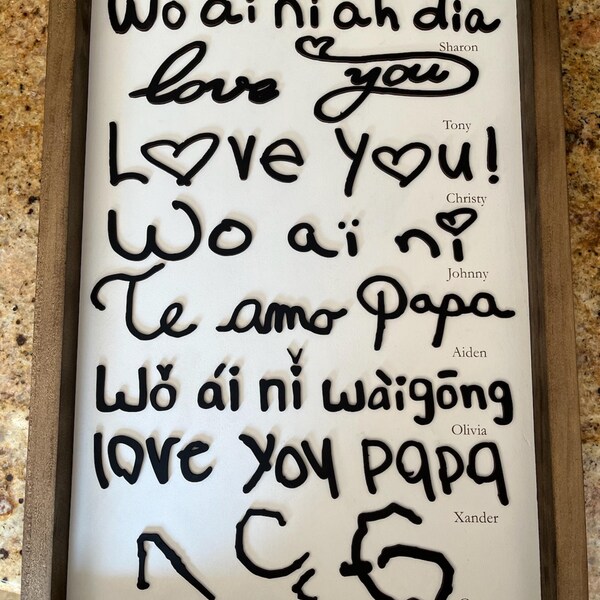 Wo ai ni ah dia
Sharon
love you
Tony
Love You!
Christy
Wo aï ni
Johnny
Te amo Papa
Aiden
Wǒ ái nǐ wàigōng
Olivia
love you papa
Xander